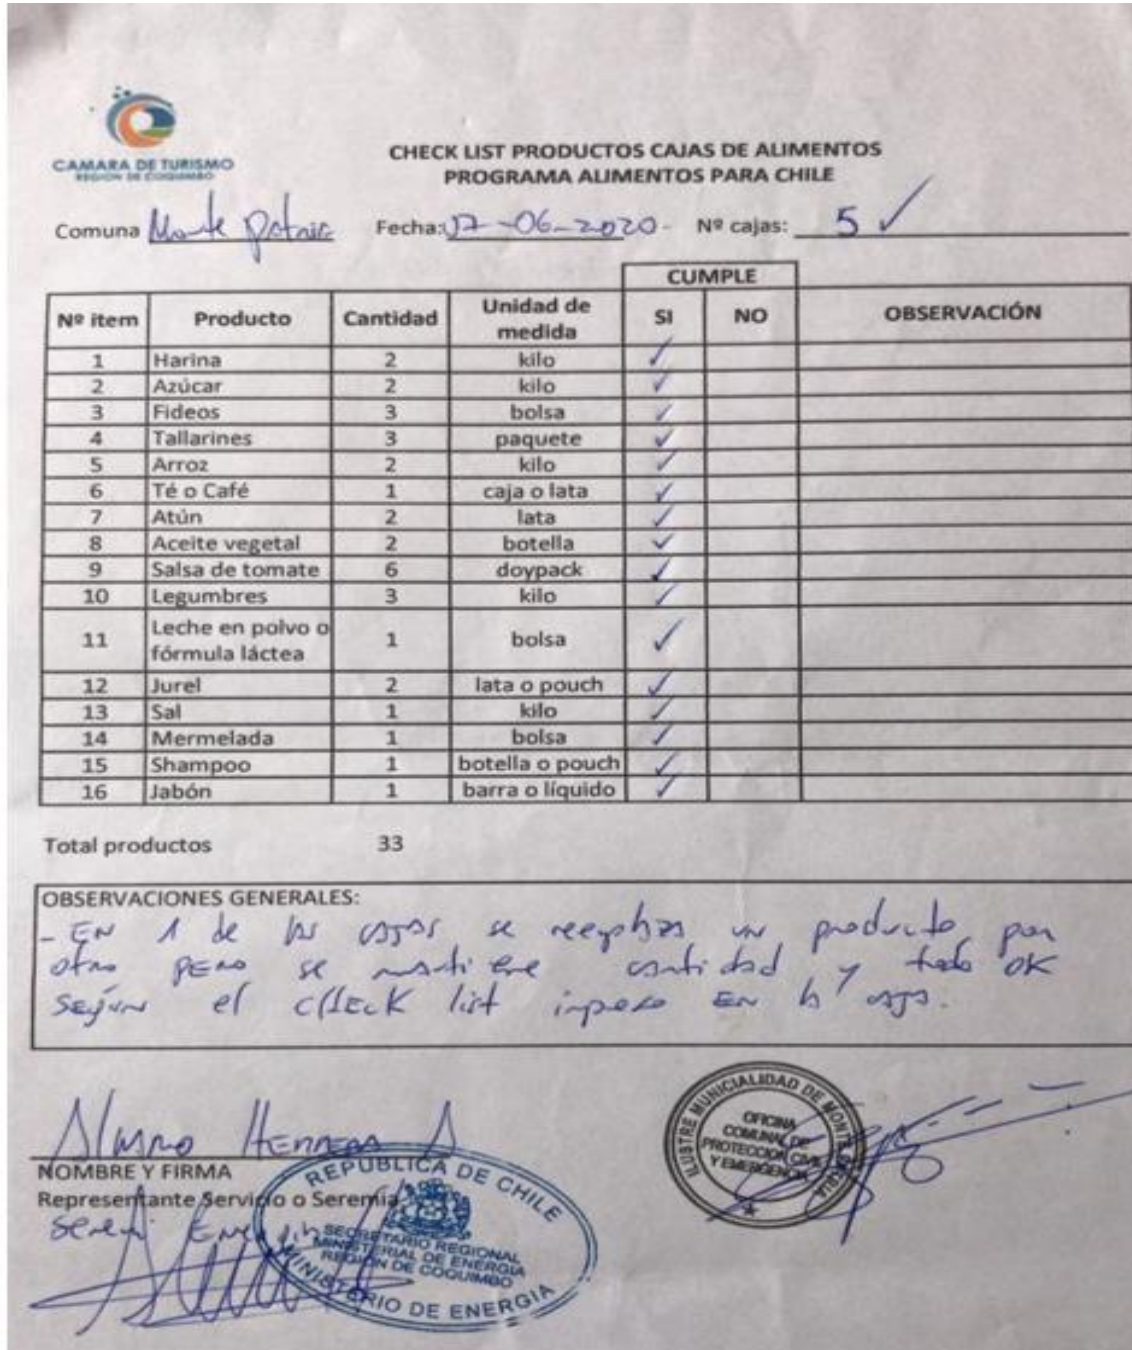 CAMARA DE TURISMO
REGIÓN DE COQUIMBO
CHECK LIST PRODUCTOS CAJAS DE ALIMENTOS
PROGRAMA ALIMENTOS PARA CHILE
Comuna Monte Patria Fecha: 17-06-2020- Nº cajas: 5 ✓
CUMPLE
Nº item Producto Cantidad Unidad de medida SI NO OBSERVACIÓN
1 Harina 2 kilo ✓
2 Azúcar 2 kilo ✓
3 Fideos 3 bolsa ✓
4 Tallarines 3 paquete ✓
5 Arroz 2 kilo ✓
6 Té o Café 1 caja o lata ✓
7 Atún 2 lata ✓
8 Aceite vegetal 2 botella ✓
9 Salsa de tomate 6 doypack ✓
10 Legumbres 3 kilo ✓
11 Leche en polvo o fórmula láctea 1 bolsa ✓
12 Jurel 2 lata o pouch ✓
13 Sal 1 kilo ✓
14 Mermelada 1 bolsa ✓
15 Shampoo 1 botella o pouch ✓
16 Jabón 1 barra o líquido ✓
Total productos 33
OBSERVACIONES GENERALES:
- EN 1 de las cajas se reemplaza un producto por
otro pero se mantiene cantidad y todo OK
según el CHECK list impreso EN la caja.
Alvaro Herrera A
NOMBRE Y FIRMA
Representante Servicio o Seremía
Seremi Energía
REPUBLICA DE CHILE
SECRETARIO REGIONAL
MINISTERIAL DE ENERGIA
REGIÓN DE COQUIMBO
MINISTERIO DE ENERGIA
ILUSTRE MUNICIALIDAD DE MONTE PATRIA
OFICINA
COMUNAL DE
PROTECCION CIVIL
Y EMERGENCIA